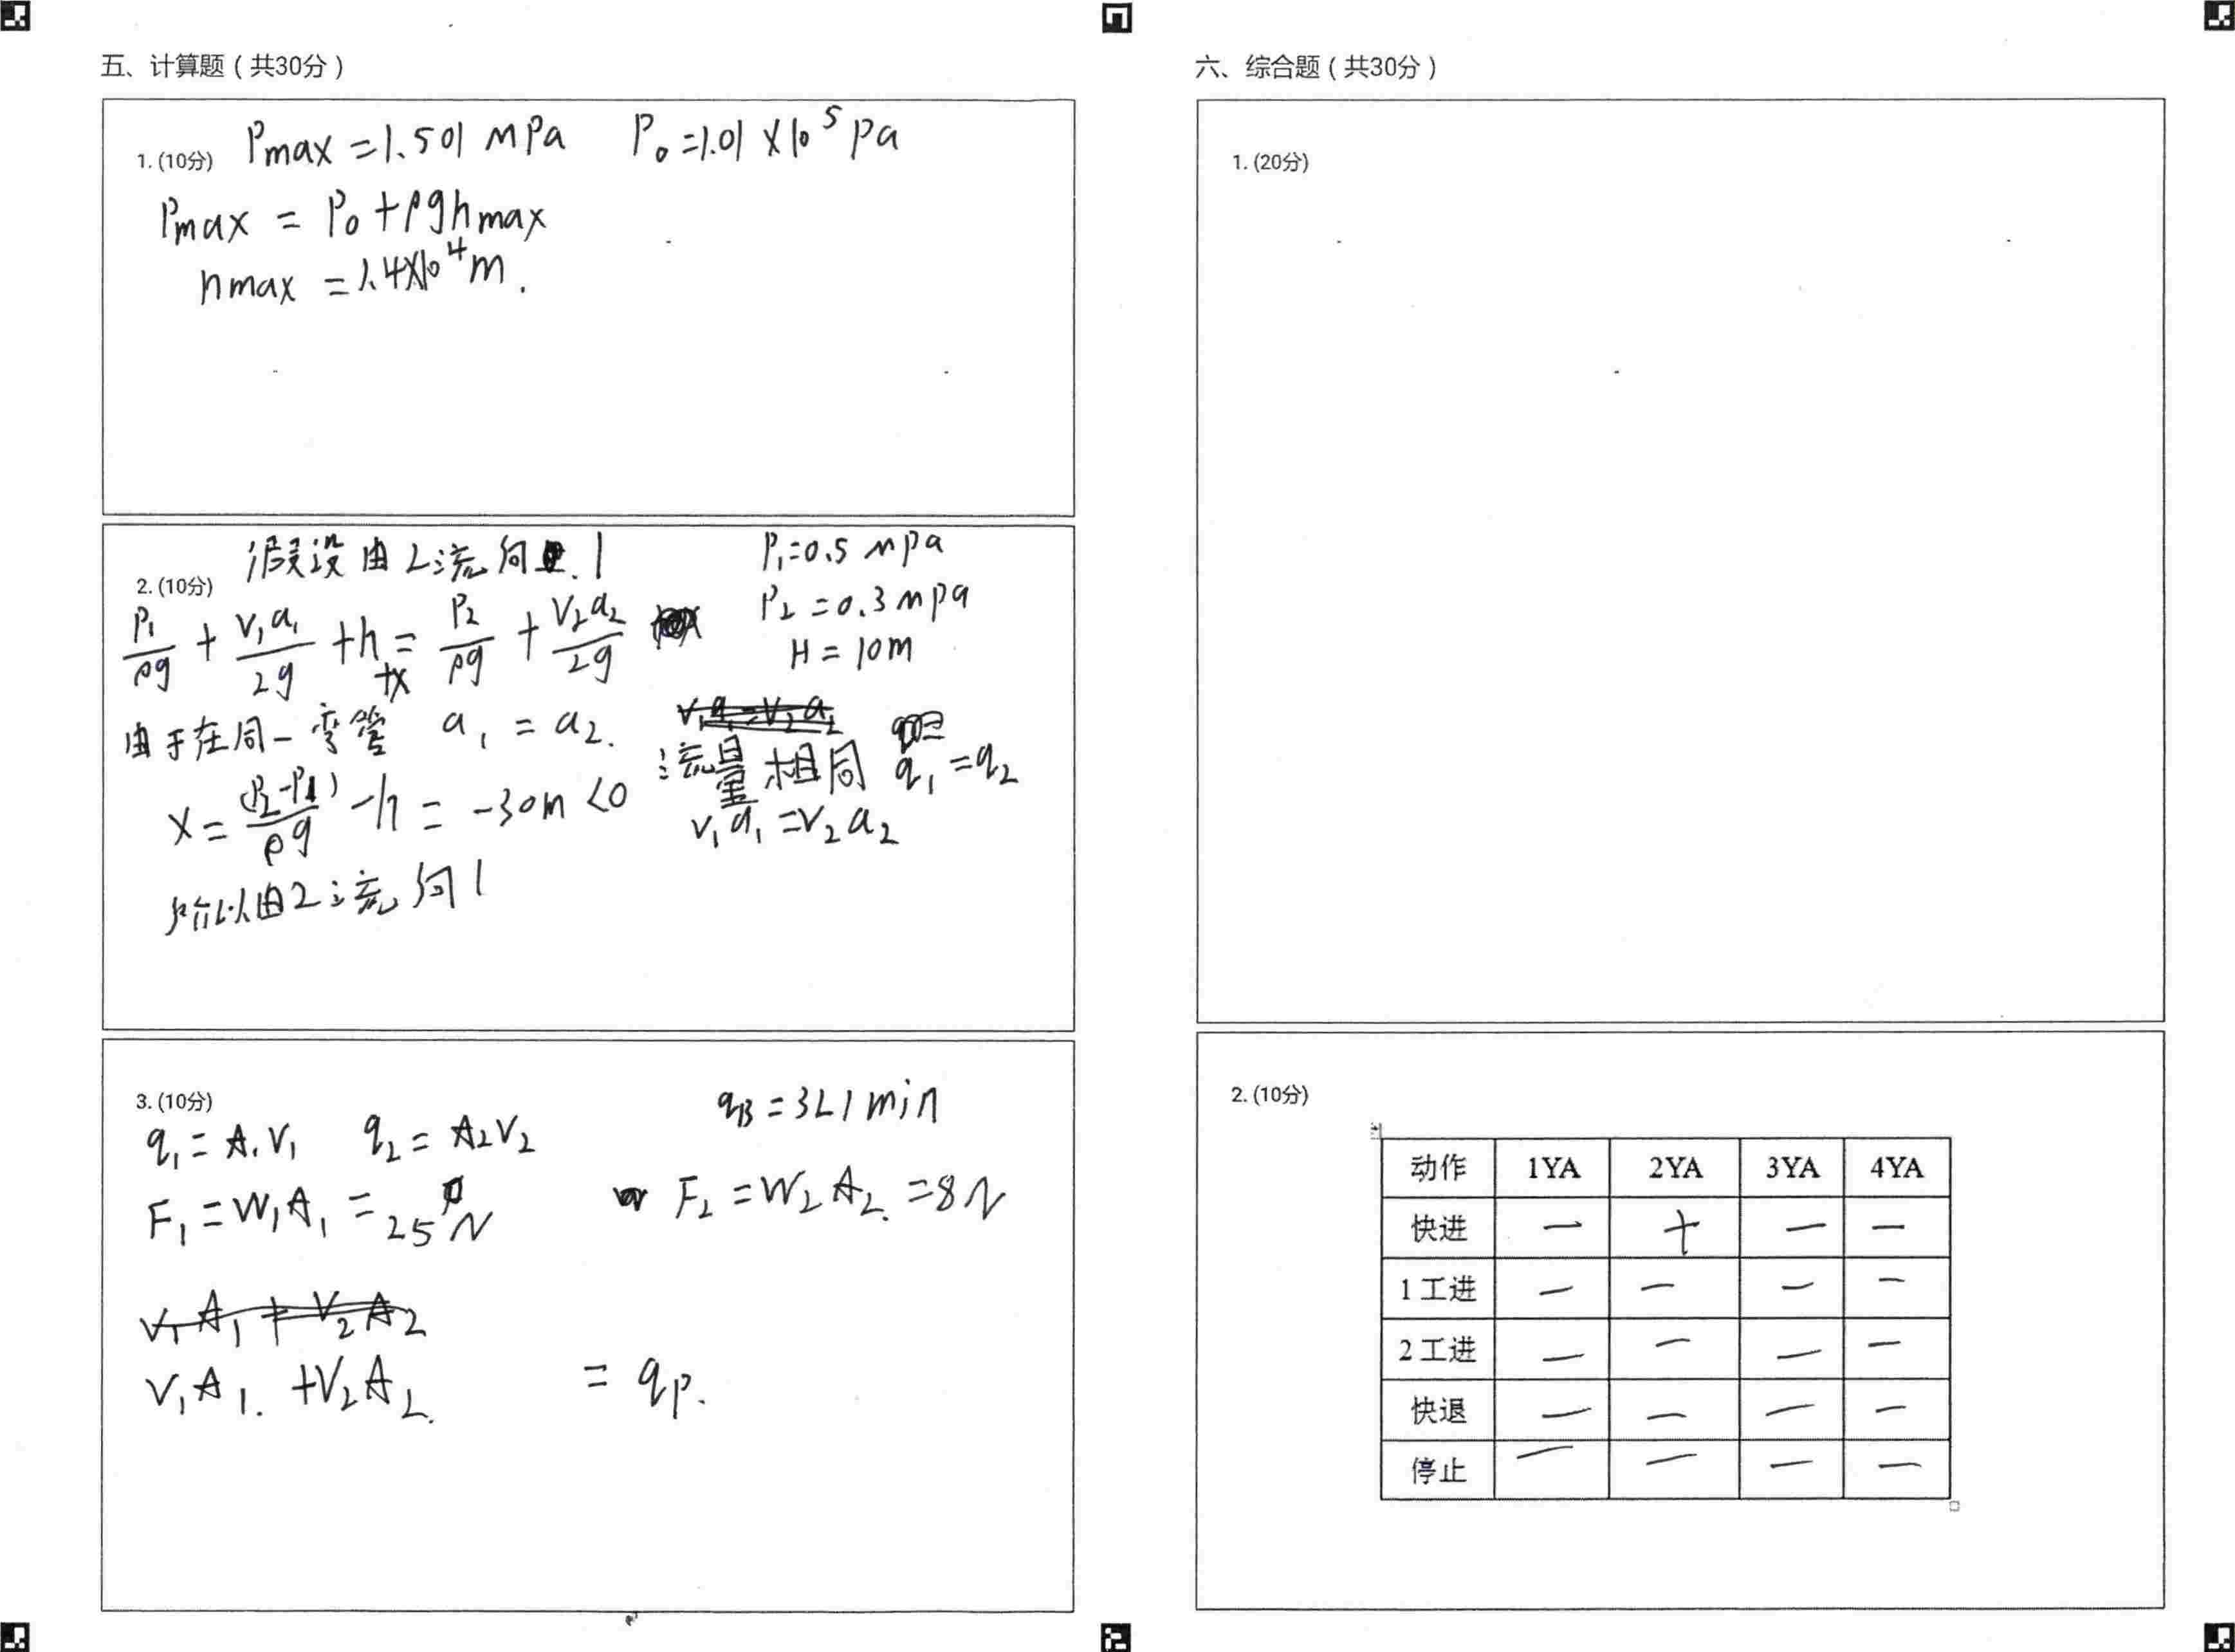 五、计算题（共30分）
1. (10分) Pmax = 1.501 MPa P₀ = 1.01 × 10⁵ Pa
Pmax = P₀ + ρghmax
hmax = 1.4×10⁴ m.
2. (10分) 假设由2流向1
P₁=0.5 mpa
P₂ = 0.3 mpa
H = 10m
P₁/ρg + V₁a₁/2g + h + x = P₂/ρg + V₂a₂/2g
由于在同一弯管 a₁ = a₂.
流量相同 q₁ = q₂
V₁a₁ = V₂a₂
x = (P₂-P₁)/ρg - h = -30m < 0
所以由2流向1
3. (10分)
qB = 3L/min
q₁ = A₁V₁ q₂ = A₂V₂
F₁ = W₁A₁ = 25N F₂ = W₂A₂ = 8N
V₁A₁ + V₂A₂
V₁A₁. + V₂A₂. = qp.
六、综合题（共30分）
1. (20分)
2. (10分)
动作 1YA 2YA 3YA 4YA
快进 — + — —
1工进 — — — —
2工进 — — — —
快退 — — — —
停止 — — — —